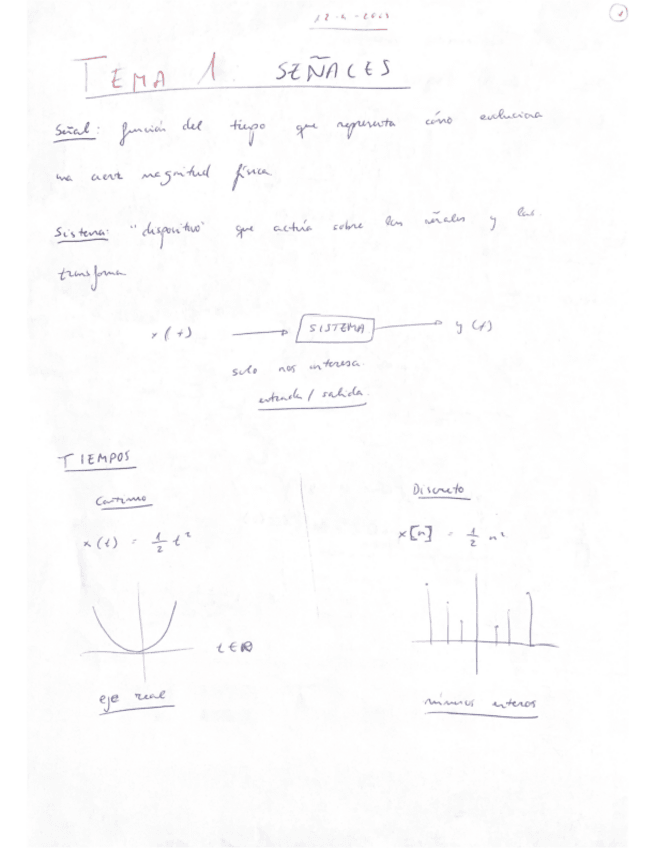 1
TEMA 1. SEÑALES
Señal: función del tiempo que representa cómo evoluciona
una cierta magnitud física
Sistema: "dispositivo" que actúa sobre las señales y las
transforma
x(t) SISTEMA y(t)
solo nos interesa
entrada / salida.
TIEMPOS
Continuo
x(t) = 1/2 t²
t ∈ R
eje real
Discreto
x[n] = 1/2 n²
números enteros